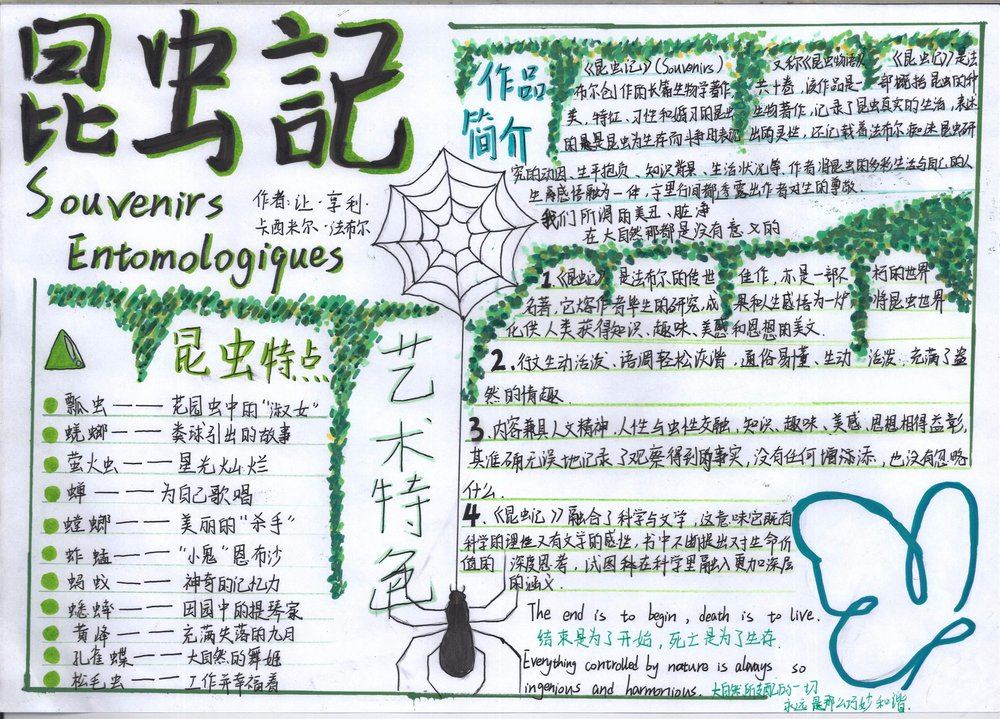 昆虫記
Souvenirs
Entomologiques
作者:让·亨利·
卡西米尔·法布尔
作品
简介
《昆虫记》(Souvenirs) 又称《昆虫物语》 《昆虫记》是法
布尔创作的长篇生物学著作 共十卷, 该作品是一部概括昆虫的种
类、特征、习性和婚习的昆虫 生物著作,记录了昆虫真实的生活,表述
的是昆虫为生存而斗争时表现 出的灵性,还记载着法布尔痴迷昆虫研
究的动因、生平抱负、知识背景、生活状况等,作者将昆虫的多彩生活与自己的人
生感悟融为一体,字里行间都透露出作者对生的尊敬.
我们所谓的美丑、脏净
在大自然那都是没有意义的
昆虫特点
瓢虫——花园虫中的“淑女”
蜣螂——粪球引出的故事
萤火虫——星光灿烂
蝉——为自己歌唱
螳螂——美丽的“杀手”
蚱蜢——“小鬼”恩布沙
蚂蚁——神奇的记忆力
蟋蟀——田园中的提琴家
黄蜂——充满失落的九月
孔雀蝶——大自然的舞姬
松毛虫——工作并幸福着
艺术特色
1.《昆虫记》是法布尔的传世 佳作,亦是一部不 朽的世界
名著,它熔作者毕生的研究,成 果和人生感悟为一炉 将昆虫世界
化供人类获得知识、趣味、美感和思想的美文.
2.行文生动活泼、语调轻松诙谐,通俗易懂、生动 活泼,充满了盎
然的情趣.
3.内容兼具人文精神,人性与虫性交融,知识、趣味、美感、思想相得益彰,
其准确无误地记录了观察得到的事实,没有任何增添,也没有忽略
什么.
4.《昆虫记》融合了科学与文学,这意味它既有
科学的理性又有文学的感性,书中不断提出对生命价
值的 深度思考,试图在科学里融入更加深层
的涵义.
The end is to begin, death is to live.
结束是为了开始,死亡是为了生存.
Everything controlled by nature is always so
ingenious and harmonious.大自然所支配的一切
永远是那么巧妙和谐.